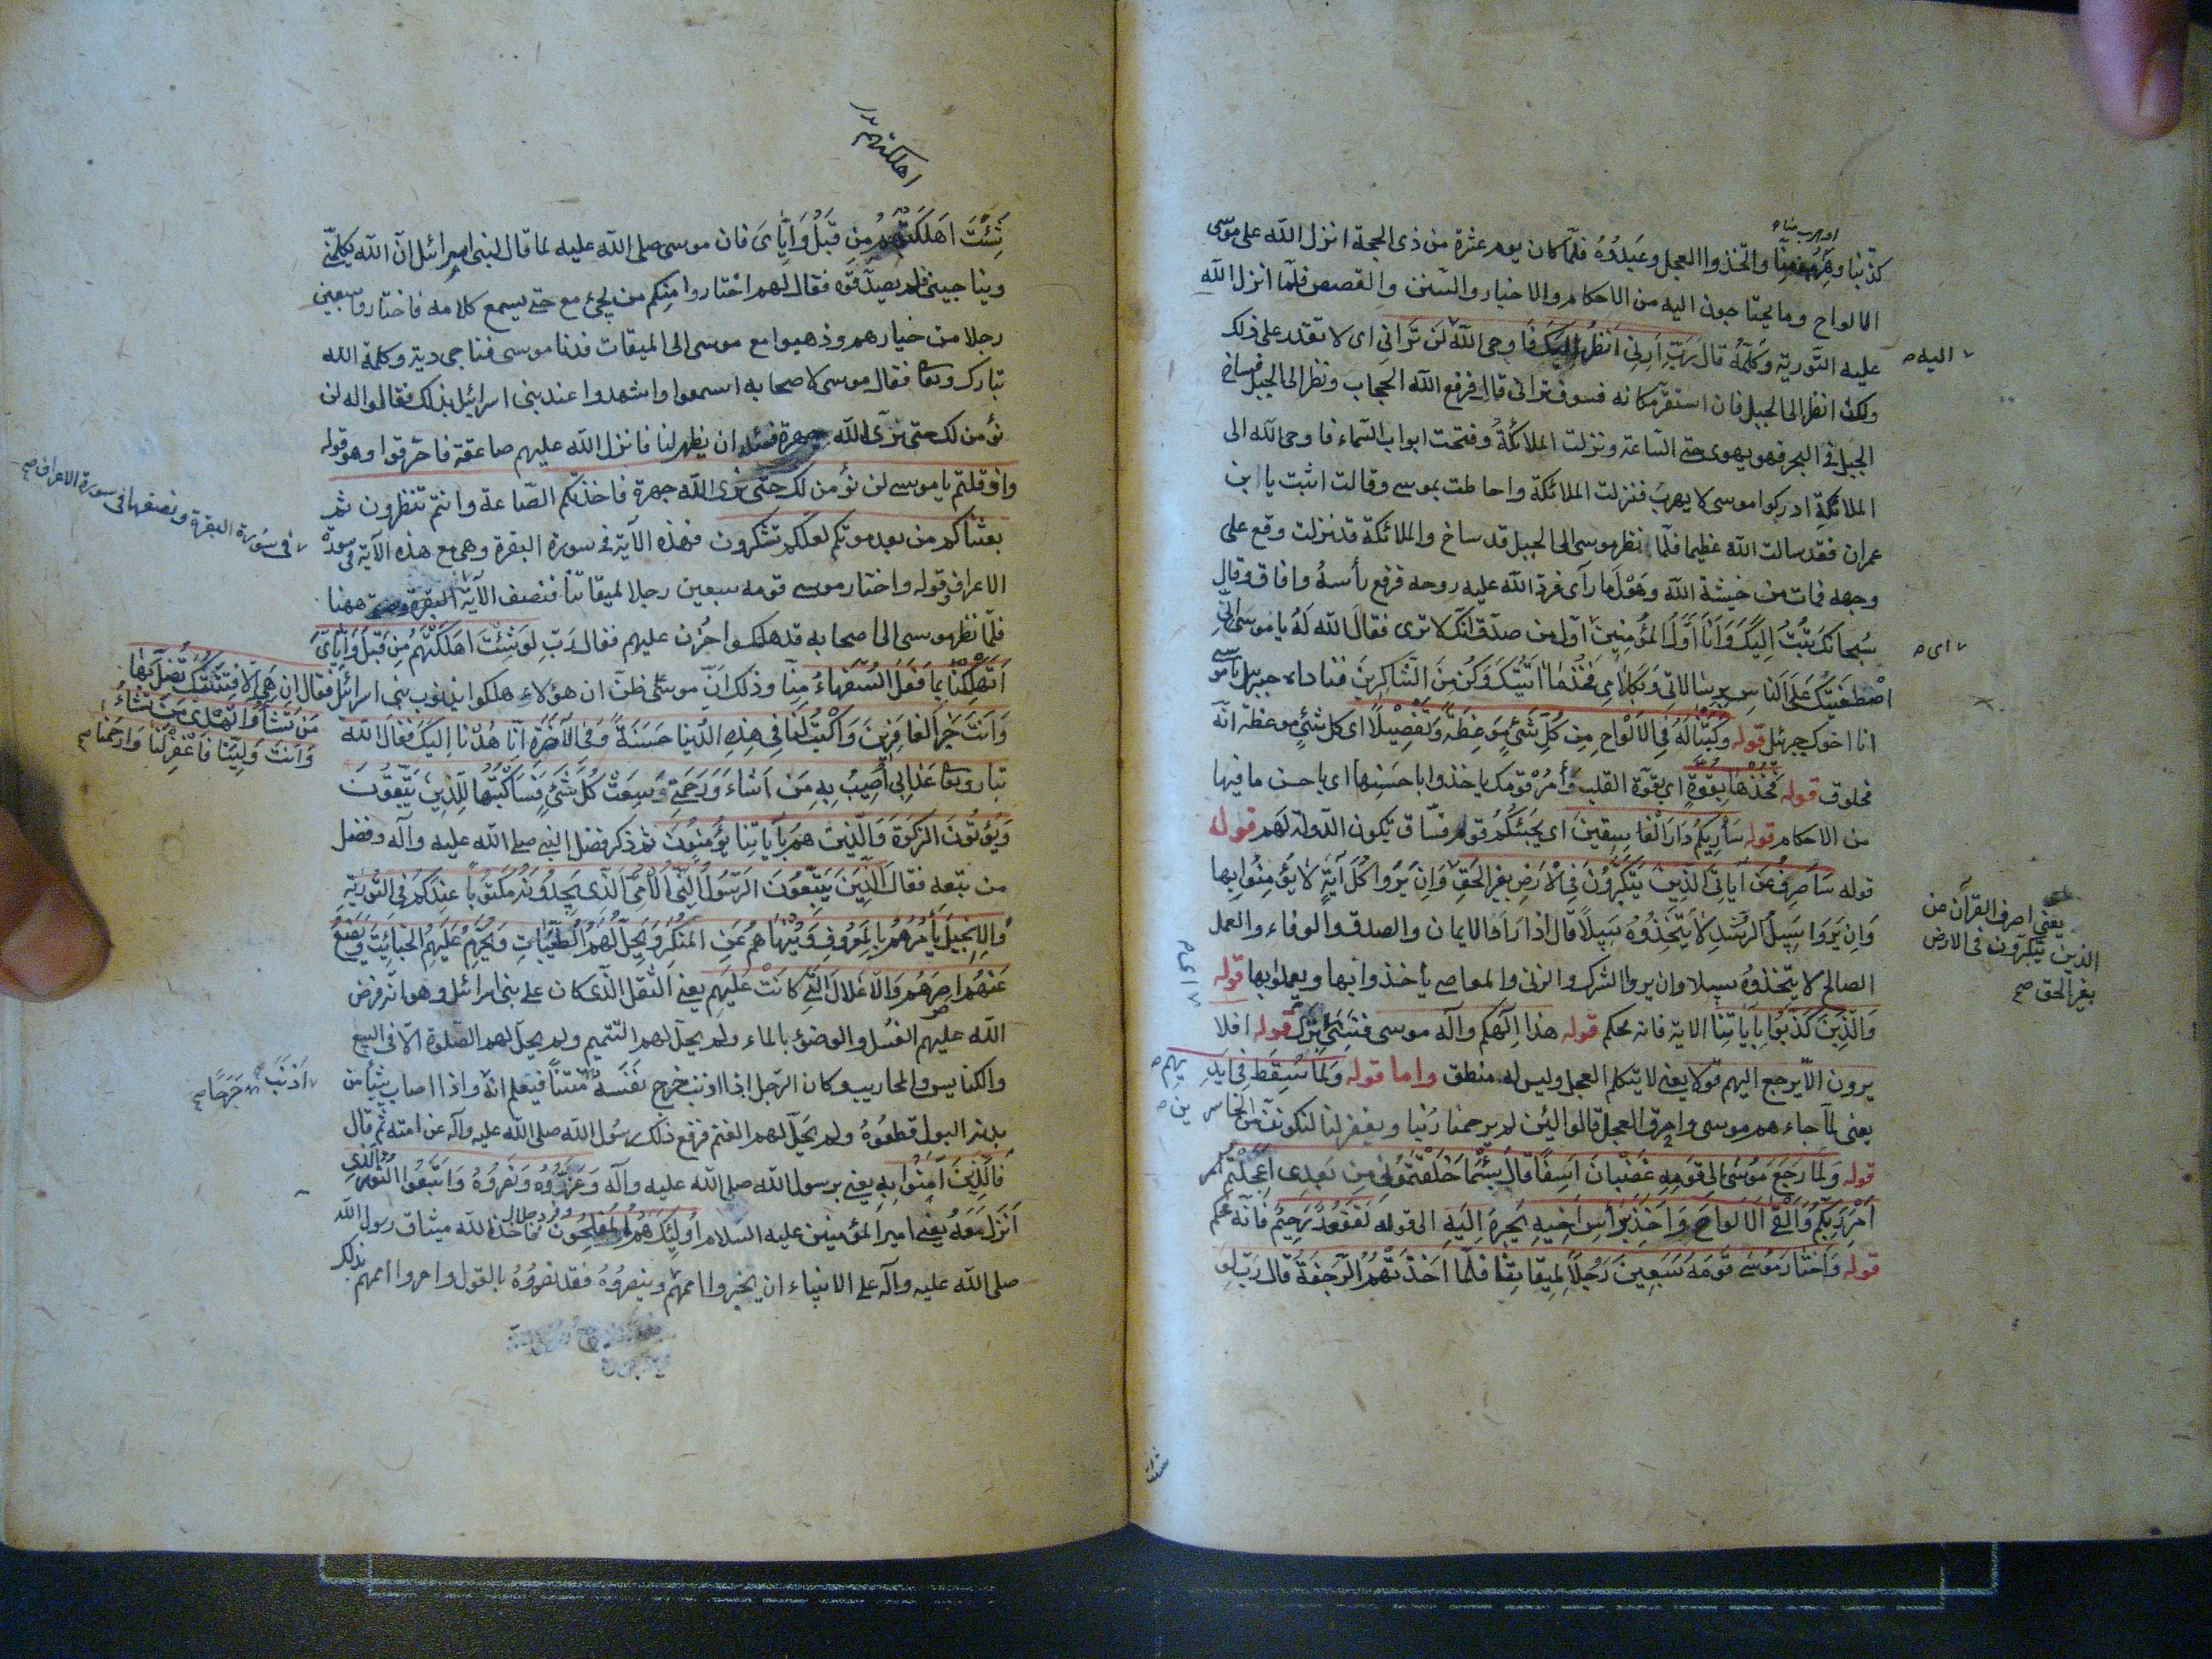 كذّبنا وهرب منّا واتّخذوا العجل وعبدوُهُ فلمّا كان يوم عشرة من ذى الحجة انزل الله على موسى
الالواح وما يحتاجون اليه من الاحكام والاخبار والسّنن والقصص فلمّا انزل الله
عليه التّورية وكلّمهُ قال رَبِّ اَرِنِى اَنظُر اِلَيكَ فَاوحى اللهُ لَن تَرَانِى اى لا تقدر على ذلك
اليه
ولكن انظر الى الجبل فان استقرّ مكانه فسوف ترانى قال فرفع الله الحجاب ونظر الى الجبل فساخ
الجبل فى البحر فهو يهوى حتى السّاعة ونزلت الملائكةُ وفتحت ابواب السّماء فاوحى الله الى
الملائكةِ ادركوا موسى لا يهرب فنزلت الملائكة واحاطت بموسى وقالت اثبت يا ابن
عمران فقد سالت الله عظيما فلمّا نظر موسى الى الجبل قد ساخ والملائكة قد نزلت وقع على
وجهه فمات من خشية الله وهَوْل ما رآى فردّ الله عليه روحه فرفع رأسهُ وافاق وقال
سُبحانَكَ تُبتُ اِلَيكَ وَاَنَا اَوَّلُ المُؤمِنِينَ اوّل من صدّق انّك لا ترى فقال الله لَهُ يا موسى اِنِّى
اى
اصْطَفَيتُكَ عَلَى النّاسِ بِرِسَالاتِى وَبِكَلامِى فَخُذ مَا اتَيتُكَ وَكُن مِنَ الشَّاكِرِينَ فناداه جبرئيل يا موسى
انا اخوك جبرئيل قوله وَكَتَبنَا لَهُ فِى الاَلْوَاحِ مِن كُلِّ شَىْءٍ مَوعِظَةً وَتَفْصِيلًا اى كل شىءٍ موعظة انّه
مخلوق قوله فَخُذهَا بِقُوَّةٍ اى بقوّة القلب وَأمُرْ قَوْمَكَ يأخذوا باحسَنِها اى باحسن ما فيها
من الاحكام قوله سَأُرِيكُم دَارَ الْفَاسِقِينَ اى يجيئكُم قوم فسّاق تكون الدّولة لهم قوله
قوله سَاَصرِفُ عَن آيَاتِىَ الَّذِينَ يَتَكَبَّرُونَ فِى الاَرضِ بِغَيرِ الحَقِّ وَاِن يَرَوا كُلَّ آيَةٍ لا يُؤمِنُوا بِها
يعنى اصرف القرآن عن
الذين يتكبّرون فى الارض
بغير الحق صح
وَاِن يَرَوا سَبِيلَ الرُّشدِ لاَ يَتَّخِذُوهُ سَبِيلًا قال اذا رَاَوا الايمان والصدق والوفاء والعمل
الصالح لا يتّخذوُه سبيلا وان يروا الشرك والزنى والمعاصى يأخذوا بها ويعملوا بها قوله
وَالَّذِينَ كَذَّبُوا بِآيَاتِنَا الاية فانه محكم قوله هذا اِلٰهكم وآله موسى فنَسِىَ اى ترك قوله افلا
يرون الاّ يرجع اليهم قولا يعنى لا يتكلم العجل وليس له منطق واما قوله وَلَمَّا سُقِطَ فِى اَيدِيهِم
يعنى لمّا جاءهم موسى واحرق العجل قالوا لئن لم يرحمنا ربّنا ويغفر لنا لنكوننّ من الخاسرين
قوله وَلَمَّا رَجَعَ مُوسَى اِلَى قَومِهِ غَضْبَانَ اَسِفًا قَالَ بِئْسَمَا خَلَفْتُمُونِى مِن بَعدِى اَعَجِلْتُم
اَمرَ رَبِّكُم وَاَلْقَى الاَلوَاحَ وَاَخَذَ بِرَأسِ اَخِيهِ يَجُرُّهُ اِلَيهِ الى قوله لَغَفُورٌ رَحِيمٌ فانّه محكم
قوله وَاختَارَ مُوسَى قَومَهُ سَبعِينَ رَجُلًا لِمِيقَاتِنَا فَلَمَّا اَخَذَتهُمُ الرَّجفَةُ قَالَ رَبِّ لَو
شئت
اهلكتهم
شِئْتَ اَهلَكتَهُم مِن قَبْلُ وَاِيَّاىَ فان موسى صلى الله عليه لما قال لبنى اسرائيل انّ الله يكلّمنى
ويناجينى فلم يصدّقوه فقال لهم اختاروا منكم من يجىء معى حتى يسمع كلامه فاختاروا سبعين
رجلا من خيارهم وذهبوا مع موسى الى الميقات فدنا موسى فناجى ربّه وكلمه الله
تبارك وتعا فقال موسى لاصحابه اسمعوا واشهدوا عند بنى اسرائيل بذلك فقالوا له لن
نؤمن لك حتى نرى الله جهرة فسئله ان يظهر لنا فانزل الله عليهم صاعقة فاحترقوا وهو قوله
واذ قلتم يا موسى لن نؤمن لك حتى نرى الله جهرة فاخذتكم الصّاعقة وانتم تنظرون ثم
بعثناكم من بعد موتكم لعلكم تشكرون فهذه الآية فى سورة البقرة وهى مع هذه الآية فى سورة
الاعراف قوله واختار موسى قومه سبعين رجلا لميقاتنا فنصف الآية ههنا
فى سُورة البقرة ونصفها فى سورة الاعراف صح
فلمّا نظر موسى الى اصحابه قد هلكوا حزن عليهم فقال رَبِّ لَو شِئْتَ اَهلَكتَهُم مِن قَبْلُ وَاِيَّاىَ
اَتُهلِكُنَا بِمَا فَعَلَ السُّفَهَاءُ مِنّا وذلك انّ موسى ظنّ ان هؤلاء هلكوا بذنوب بنى اسرائيل فقال اِن هِىَ اِلّا فِتنَتُكَ تُضِلُّ بِهَا
مَن تَشَاءُ وَتَهْدِى مَن تَشَاءُ
اَنتَ وَلِيُّنَا فَاغْفِر لَنَا وَارحَمنَا صح
وَاَنتَ خَيرُ الغَافِرِينَ وَاكْتُب لَنَا فِى هذِهِ الدُّنيَا حَسَنَةً وَفِى الآخِرَةِ اِنّا هُدْنَا اِلَيكَ فقال الله
تبارك وتعا عَذَابِى اُصِيبُ بِهِ مَن اَشَاءُ وَرَحمَتِى وَسِعَتْ كُلَّ شَىْءٍ فَسَاَكتُبُهَا لِلَّذِينَ يَتَّقُونَ
وَيُؤتُونَ الزَّكوةَ وَالَّذِينَ هُم بِآيَاتِنَا يُؤمِنُونَ ثم ذكر فضل النبى صلى الله عليه وآله وفضل
من تبعه فقال اَلَّذِينَ يَتَّبِعُونَ الرَّسُولَ النَّبِىَّ الاُمِّىَّ الَّذِى يَجِدُونَهُ مَكتُوبًا عِندَهُم فِى التَّورَيةِ
وَالاِنجِيلِ يَأمُرُهُم بِالمَعرُوفِ وَيَنهَاهُم عَنِ المُنكَرِ وَيُحِلُّ لَهُمُ الطَّيِّبَاتِ وَيُحَرِّمُ عَلَيهِمُ الخَبَائِثَ وَيَضَعُ
عَنهُم اِصرَهُم وَالاَغلَالَ الَّتِى كَانَتْ عَلَيهِم يعنى الثقل الّذى كان على بنى اسرائيل وهو انّه فرض
الله عليهم الغسل والوضوء بالماء ولم يحلّ لهم التّيمم ولم يحلّ لهم الصّلوة الّا فى البيع
والكنايس والمحاريب وكان الرّجل اذا اذنب خرج نفسه منتنًا فيعلم انّه واذا اصاب شيئًا من
اَذْنَبَ
بدنه البول قطعُوهُ ولم يَحلّ لهم الغنم فرفع ذلك رسُول الله صلى الله عليه وآله عن امته ثم قال
فَالَّذِينَ آمَنُوا بِهِ يعنى برسول الله صلى الله عليه وآله وَعَزَّرُوُه وَنَصَرُوُهُ وَاتَّبَعُوا النُّورَ الَّذِى
اُنزِلَ مَعَهُ يعنى امير المؤمنين عليه السلام اُولَئِكَ هُمُ المُفلِحُونَ فاخذ الله ميثاق رسول الله
صلى الله عليه وآله على الانبياء ان يخبروا اممهم وينصروُهُ فقد نصروُهُ بالقول وامروا اممهم بذلك